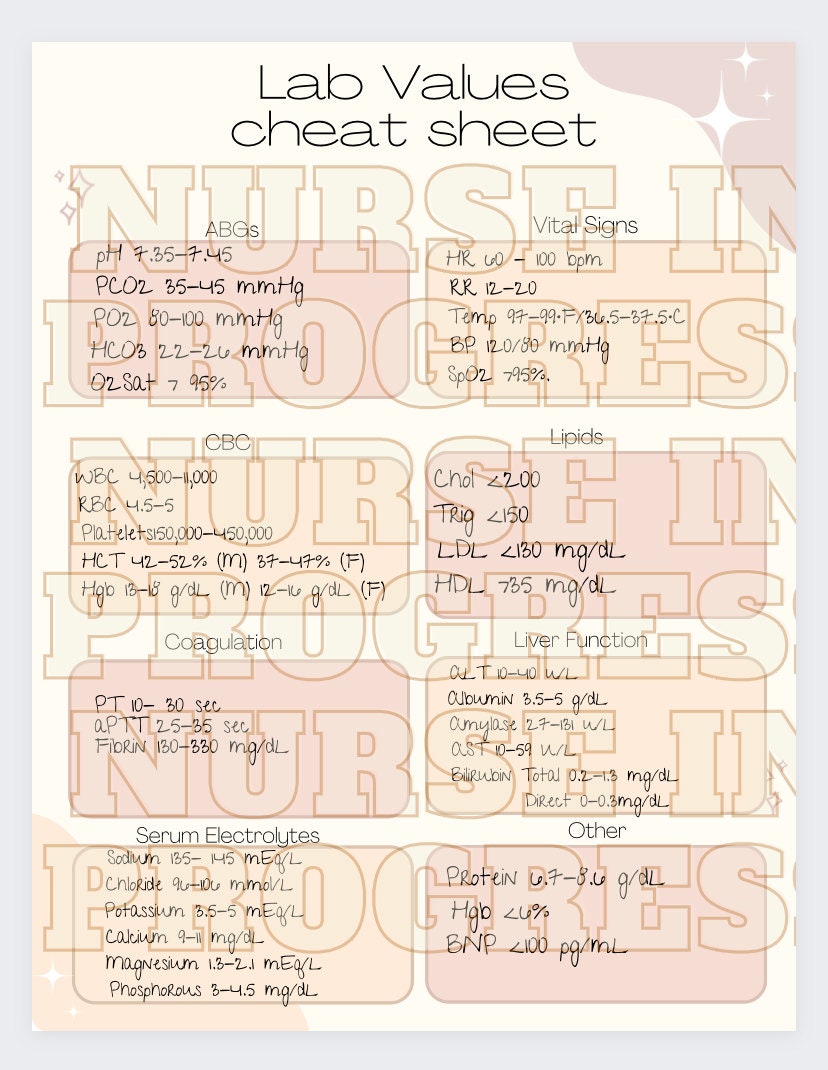 Lab Values
cheat sheet
NURSE IN
PROGRESS
ABGs
pH 7.35-7.45
PCO2 35-45 mmHg
PO2 80-100 mmHg
HCO3 22-26 mmHg
O2Sat > 95%
Vital Signs
HR 60 - 100 bpm
RR 12-20
Temp 97-99•F/36.5-37.5•C
BP 120/80 mmHg
SpO2 >95%.
NURSE IN
PROGRESS
CBC
WBC 4,500-11,000
RBC 4.5-5
Platelets150,000-450,000
HCT 42-52% (M) 37-47% (F)
Hgb 13-18 g/dL (M) 12-16 g/dL (F)
Lipids
Chol <200
Trig <150
LDL <130 mg/dL
HDL >35 mg/dL
Coagulation
PT 10- 30 sec
aPTT 25-35 sec
Fibrin 130-330 mg/dL
Liver Function
ALT 10-40 U/L
Albumin 3.5-5 g/dL
Amylase 27-131 U/L
AST 10-59 U/L
Bilirubin Total 0.2-1.3 mg/dL
Direct 0-0.3mg/dL
NURSE IN
PROGRESS
Serum Electrolytes
Sodium 135- 145 mEq/L
Chloride 96-106 mmol/L
Potassium 3.5-5 mEq/L
Calcium 9-11 mg/dL
Magnesium 1.3-2.1 mEq/L
Phosphorous 3-4.5 mg/dL
Other
Protein 6.7-8.6 g/dL
Hgb <6%
BNP <100 pg/mL